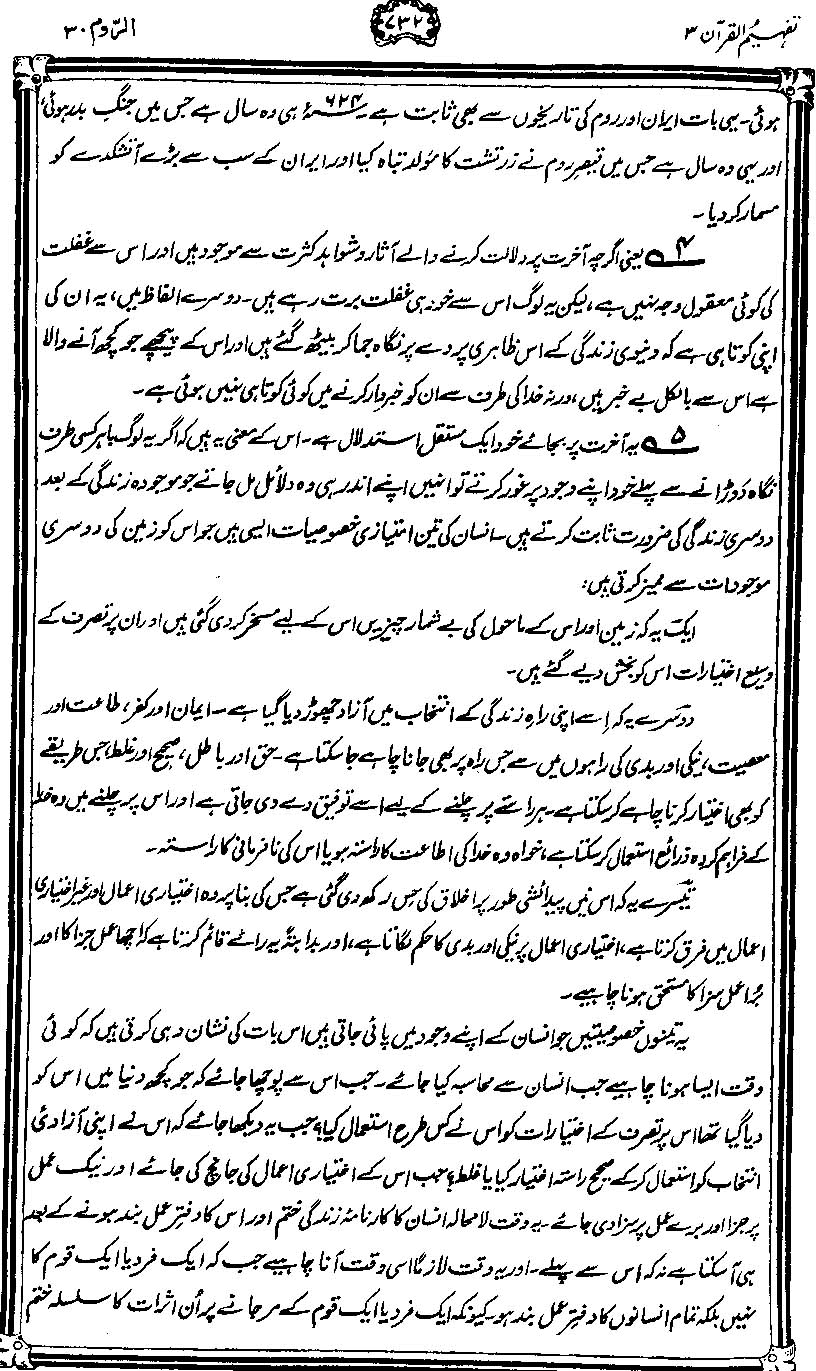 تفہیم القرآن ۳
۷۳۲
الرّوم ۳۰
ہوئی۔ یہی بات ایران اور روم کی تاریخوں سے بھی ثابت ہے۔ ۶۲۴ء ہی وہ سال ہے جس میں جنگِ بدر ہوئی،
اور یہی وہ سال ہے جس میں قیصرِ روم نے زرتشت کا مَولد تباہ کیا اور ایران کے سب سے بڑے آتشکدے کو
مسمار کر دیا۔
۴ یعنی اگرچہ آخرت پر دلالت کرنے والے آثار و شواہد کثرت سے موجود ہیں اور اس سے غفلت
کی کوئی معقول وجہ نہیں ہے، لیکن یہ لوگ اس سے خود ہی غفلت برت رہے ہیں۔ دوسرے الفاظ میں، یہ ان کی
اپنی کوتاہی ہے کہ دنیوی زندگی کے اس ظاہری پردے پر نگاہ جما کر بیٹھ گئے ہیں اور اس کے پیچھے جو کچھ آنے والا
ہے اس سے بالکل بے خبر ہیں، ورنہ خدا کی طرف سے ان کو خبردار کرنے میں کوئی کوتاہی نہیں ہوئی ہے۔
۵ یہ آخرت پر بجائے خود ایک مستقل استدلال ہے۔ اس کے معنی یہ ہیں کہ اگر یہ لوگ باہر کسی طرف
نگاہ دَوڑانے سے پہلے خود اپنے وجود پر غور کرتے تو انہیں اپنے اندر ہی وہ دلائل مل جاتے جو موجودہ زندگی کے بعد
دوسری زندگی کی ضرورت ثابت کرتے ہیں۔ انسان کی تین امتیازی خصوصیات ایسی ہیں جو اس کو زمین کی دوسری
موجودات سے ممیز کرتی ہیں:
ایک یہ کہ زمین اور اس کے ماحول کی بے شمار چیزیں اس کے لیے مسخر کر دی گئی ہیں اور ان پر تصرف کے
وسیع اختیارات اس کو بخش دیے گئے ہیں۔
دوسرے یہ کہ اسے اپنی راہِ زندگی کے انتخاب میں آزاد چھوڑ دیا گیا ہے۔ ایمان اور کفر، طاعت اور
معصیت، نیکی اور بدی کی راہوں میں سے جس راہ پر بھی جانا چاہے جا سکتا ہے۔ حق اور باطل، صحیح اور غلط، جس طریقے
کو بھی اختیار کرنا چاہے کر سکتا ہے۔ ہر راستے پر چلنے کے لیے اسے توفیق دے دی جاتی ہے اور اس پر چلنے میں وہ خدا
کے فراہم کردہ ذرائع استعمال کر سکتا ہے، خواہ وہ خدا کی اطاعت کا راستہ ہو یا اس کی نافرمانی کا راستہ۔
تیسرے یہ کہ اس میں پیدائشی طور پر اخلاق کی حِس رکھ دی گئی ہے جس کی بنا پر وہ اختیاری اعمال اور غیر اختیاری
اعمال میں فرق کرتا ہے، اختیاری اعمال پر نیکی اور بدی کا حکم لگاتا ہے، اور بداہتًہ یہ رائے قائم کرتا ہے کہ اچھا عمل جزا کا اور
بُرا عمل سزا کا مستحق ہونا چاہیے۔
یہ تینوں خصوصیتیں جو انسان کے اپنے وجود میں پائی جاتی ہیں اس بات کی نشان دہی کرتی ہیں کہ کوئی
وقت ایسا ہونا چاہیے جب انسان سے محاسبہ کیا جائے۔ جب اس سے پوچھا جائے کہ جو کچھ دنیا میں اس کو
دیا گیا تھا اس پر تصرف کے اختیارات کو اس نے کس طرح استعمال کیا؟ جب یہ دیکھا جائے کہ اس نے اپنی آزادیٔ
انتخاب کو استعمال کر کے صحیح راستہ اختیار کیا یا غلط؟ جب اس کے اختیاری اعمال کی جانچ کی جائے اور نیک عمل
پر جزا اور برے عمل پر سزا دی جائے۔ یہ وقت لامحالہ انسان کا کارنامۂ زندگی ختم اور اس کا دفترِ عمل بند ہونے کے بعد
ہی آ سکتا ہے نہ کہ اس سے پہلے۔ اور یہ وقت لازمًا اسی وقت آنا چاہیے جب کہ ایک فرد یا ایک قوم کا
نہیں بلکہ تمام انسانوں کا دفترِ عمل بند ہو۔ کیونکہ ایک فرد یا ایک قوم کے مر جانے پر اُن اثرات کا سلسلہ ختم